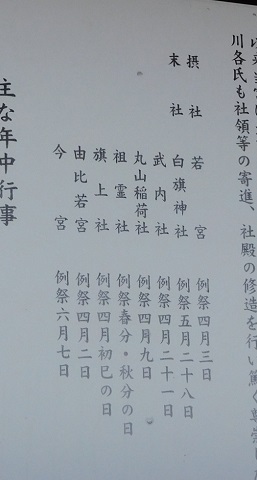 川各氏も社領等の寄進、社殿の修造を行い篤く尊崇し
摂社 若宮 例祭四月三日
末社 白旗神社 例祭五月二十八日
武内社 例祭四月二十一日
丸山稲荷社 例祭四月九日
祖霊社 例祭春分・秋分の日
旗上社 例祭四月初巳の日
由比若宮 例祭四月二日
今宮 例祭六月七日
主な年中行事